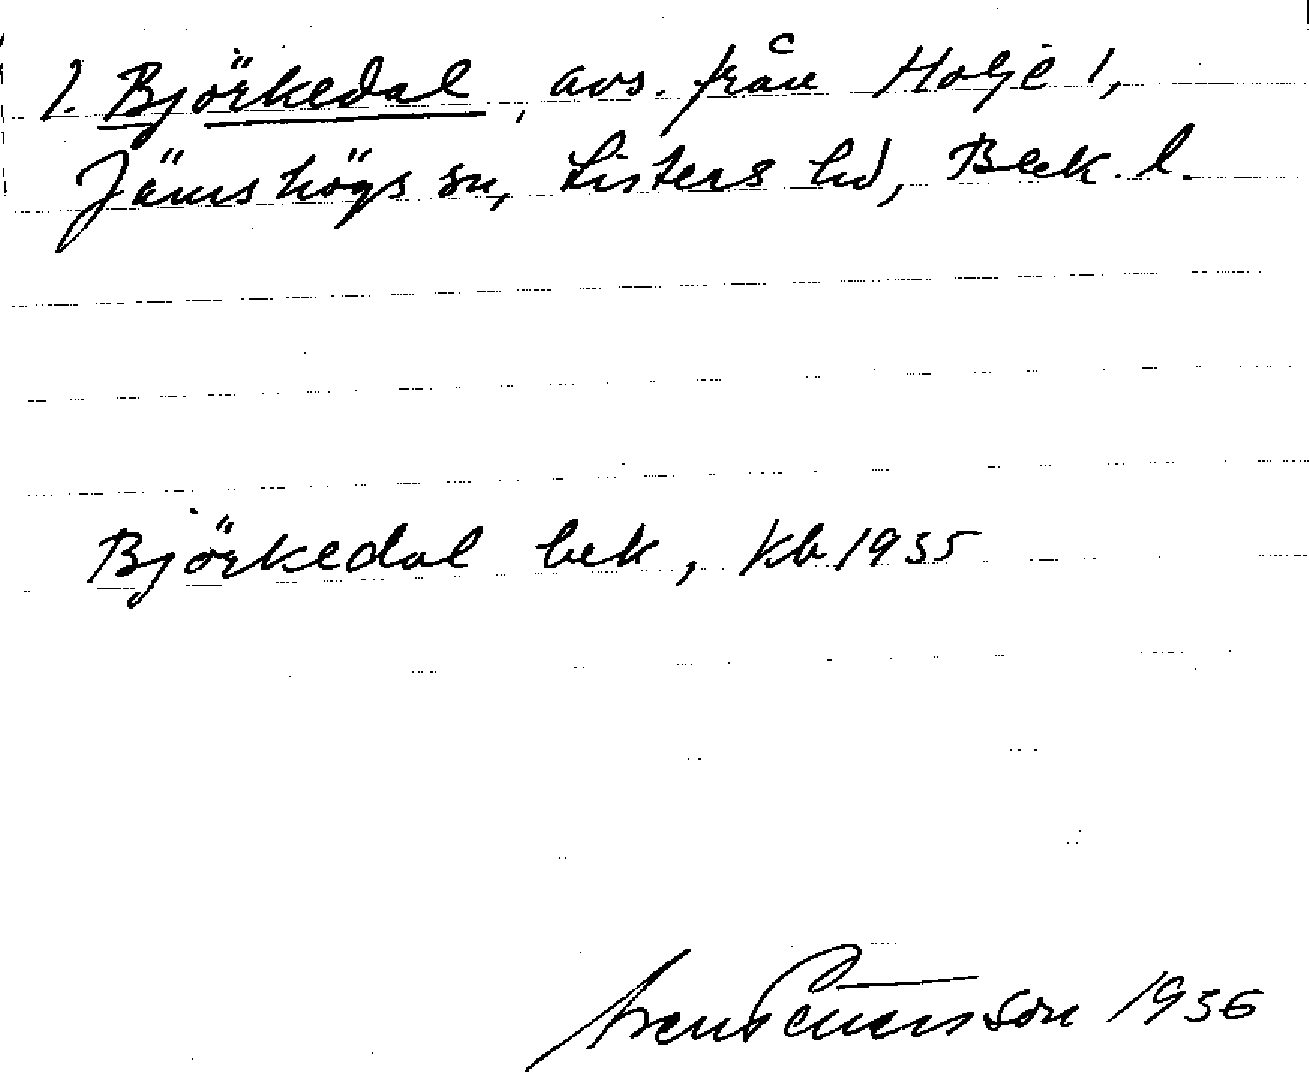 1. Björkedal, avs. från Holje 1,
Jämshögs sn, Listers hd, Blek. l.
Björkedal bek, Kb 1955
Pettersson 1956